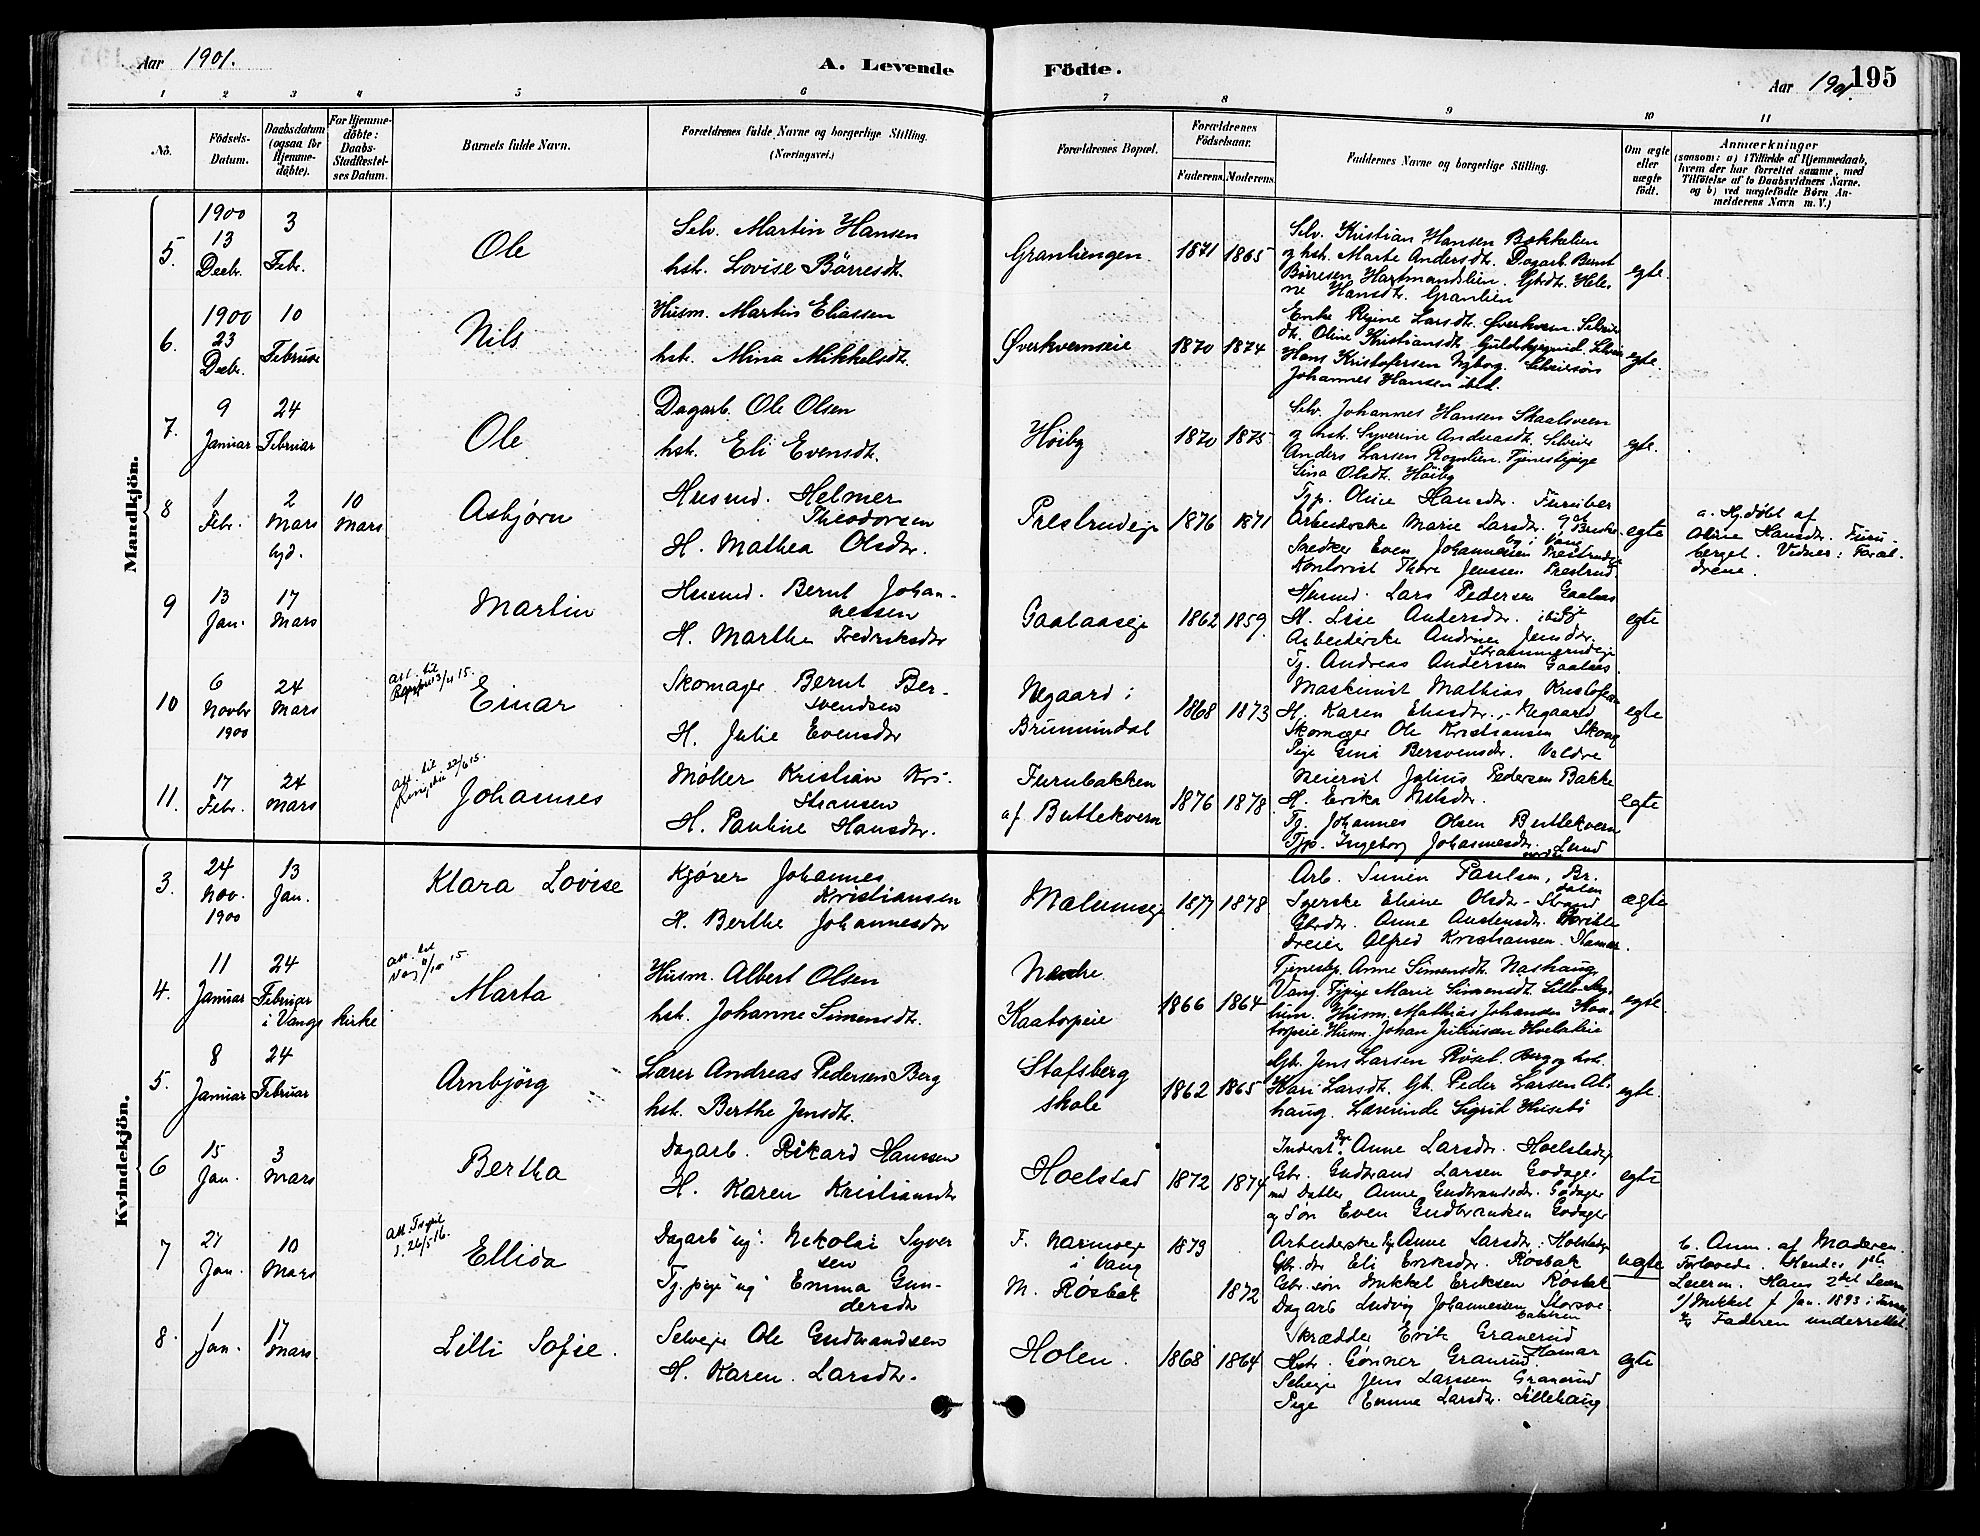 Aar 1901.
A. Levende
Födte.
Aar 1901.
195
1 2 3 4 5 6 7 8 9 10 11
No.
Födsels-
Datum.
Daabsdatum
(ogsaa for
Hjemme-
döbte).
For Hjemme-
döbte:
Daabs-
Stadfæstel-
ses Datum.
Barnets fulde Navn.
Forældrenes fulde Navne og borgerlige Stilling.
(Næringsvei.)
Forældrenes Bopæl.
Forældrenes
Födselsaar.
Faderens. Moderens.
Faddernes Navne og borgerlige Stilling.
Om ægte
eller
uægte
födt.
Anmærkninger
(saasom: a) i Tilfælde af Hjemmedaab,
hvem der har forrettet samme, med
Tilföielse af to Daabsvidners Navne.
og b) ved uægtefödte Börn An-
melderens Navn m. V.)
Mandkjön.
5.
1900
13
Decbr.
3
Febr.
Ole
Selv. Martin Hansen
hst. Lovise Börresdt.
Granliengen.
1871 1865
Selv. Kristian Hansen Bakkelien
og hst. Marte Andersdt. Dagarb. Bernt
Börresen Hartmandslien. Gbrdt. Hele-
ne Hansdt. Granlien
egte.
6.
1900
23
Decbr.
10
Februar
Nils
Husm. Martin Eliassen
hst. Mina Mikkelsdt.
Øverkvernseie
1870 1874
Enke Regine Larsdt. Øverkvern.
dt. Oline Kristiansdt.
Hans Kristofersen Nybog. Selveiersön
Johannes Hansen ibid.
egte.
7.
9
Januar
24
Februar
Ole
Dagarb. Ole Olsen
hst. Eli Evensdt.
Höiby
1870 1875
Selv. Johannes Hansen Skaalsveen
og hst. Syverine Andreasdt. Selveier
Anders Larsen Rognlien. Tjenestepige
Lina Olsdt. Höiby
egte.
8
1
Febr.
2
Mars
hjd.
10
Mars
Asbjørn
Husmd. Helmer
Theodorsen
H. Mathea Olsdtr.
Prestrudeje
1876 1871
Tjp. Oline Hansdtr. Furuber
Arbeiderske Marie Larsdtr.
by i Vang
Snedker Even Johannessen Prestrudeje
Kontorist Thore Jenssen Prestrud
egte
a. Hj.døbt af
Oline Hansdr. Furu-
berget. Vidner: Foræl-
drene.
9
13
Jan.
17
Mars
Martin
Husmd. Bernt Johan-
nessen
H. Marthe Fredriksdtr
Gaalaaseje
1862 1859.
Husmd. Lars Pedersen Gaalaas
H. Lise Andersdtr. ibid
Arbeiderske Andrine Jensdtr.
Tj. Andreas Anderssen Gaalaas.
egte
10
6
Novbr
1900
24
Mars
att. til
Einar
Skomager Bernt Ber-
svendsen
H. Julie Evensdtr
Negaard i
Brummundal
1868 1873
Maskinist Mathias Kristofersen
H. Karen Eliasdtr. - Negaard
Skomager Ole Kristiansen Skoug
Pige Gina Bersvensdtr. Valdre
egte
11.
17
Febr.
24
Mars
att. til
Ringebu 22/6 15.
Johannes
Møller Kristian Kri-
stiansen
H. Pauline Hansdtr.
Furubakken
af Buttekvern
1876 1878
Meierist Julius Pedersen Bakke
H. Erika Nilsdtr.
Tj. Johannes Olsen Buttekvern
Tjp. Ingeborg Johannesdtr. Lund
egte
Kvindekjön.
3.
24
Nov.
1900
13
Jan.
Klara Lovise
Kjører Johannes
Kristiansen
H. Berthe Johannesdtr
Malumseje
1877 1878
Arb. Simen Paulsen, Br.
dalen
Syerske Eliane Olsdtr - Strand
Gbrdtr. Anne Austensdtr.
dreier Alfred Kristiansen. Hamar.
ægte
4.
11
Januar
24
Februar
i Vangs kirke
att. til
Vang 11/10 15.
Marta
Husm. Albert Olsen
hst. Johanne Simensdt.
Nedre
Kaatorpeie
1866 1864
Tjenestep. Anne Simensdt. Nashaug
Vang. Tjpige Marie Simensdt.
Husm. Mathias Johansen Kaa-
torpeie Husm. Johan Juliussen Hoelstadeie
egte.
5.
8
Januar
24
Februar
Arnbjörg
Lærer Andreas Pedersen Berg
hst. Berthe Jensdt.
Stafsberg
skole
1862 1865
Gbr. Jens Larsen Röset. Berg og hst.
Kari Larsdt. Gbr. Peder Larsen Al-
haug. Lærerinde Sigrid Husebö
egte.
6
15
Jan.
3
Mars
Bertha
Dagarb. Rikard Hanssen
H. Karen Kristiansdtr
Hoelstad
1872 1874
Inderst Pge Anne Larsdtr. Hoelstadeje
Gbr. Gudbrand Larsen Godager
med Datter Anne Gudbrandsdtr. Godager
og Søn Even Gudbrandsen Godager
egte
7
27
Jan.
10
Mars
Ellida
Dagarb "ug". Nikolai Syver
sen
Tj.pige "ug" Emma Gun-
dersdtr
F. Narmoeje
i Vang
M. Røsbak
1873
1872
Arbeiderske Anne Larsdtr. Hoelstadeje
Gbr. dtr Eli Eriksdtr. Røsbak
Gbr. søn Mikkel Eriksen Røsbak
Dagarb Ludvig Johannesen Storsve-
bakken
uegte
b. Anm. af Moderen.
Forlovede. Hendes 1ste
Leierm. Hans 2det Leierm
1) Mikkel f. Jan. 1893 i Furnes
Faderen underrettet.
8
1
Jan.
17
Mars.
Lilli Sofie.
Selveje Ole Gudbrandsen
H. Karen Larsdtr.
Holen.
1868 1864
Skrædder Erik Granerud
Hamar
Hstr. Gønner Granrud
Selveje Jens Larssen Granerud
Pige Emma Larsdtr. Lillehaug
egte